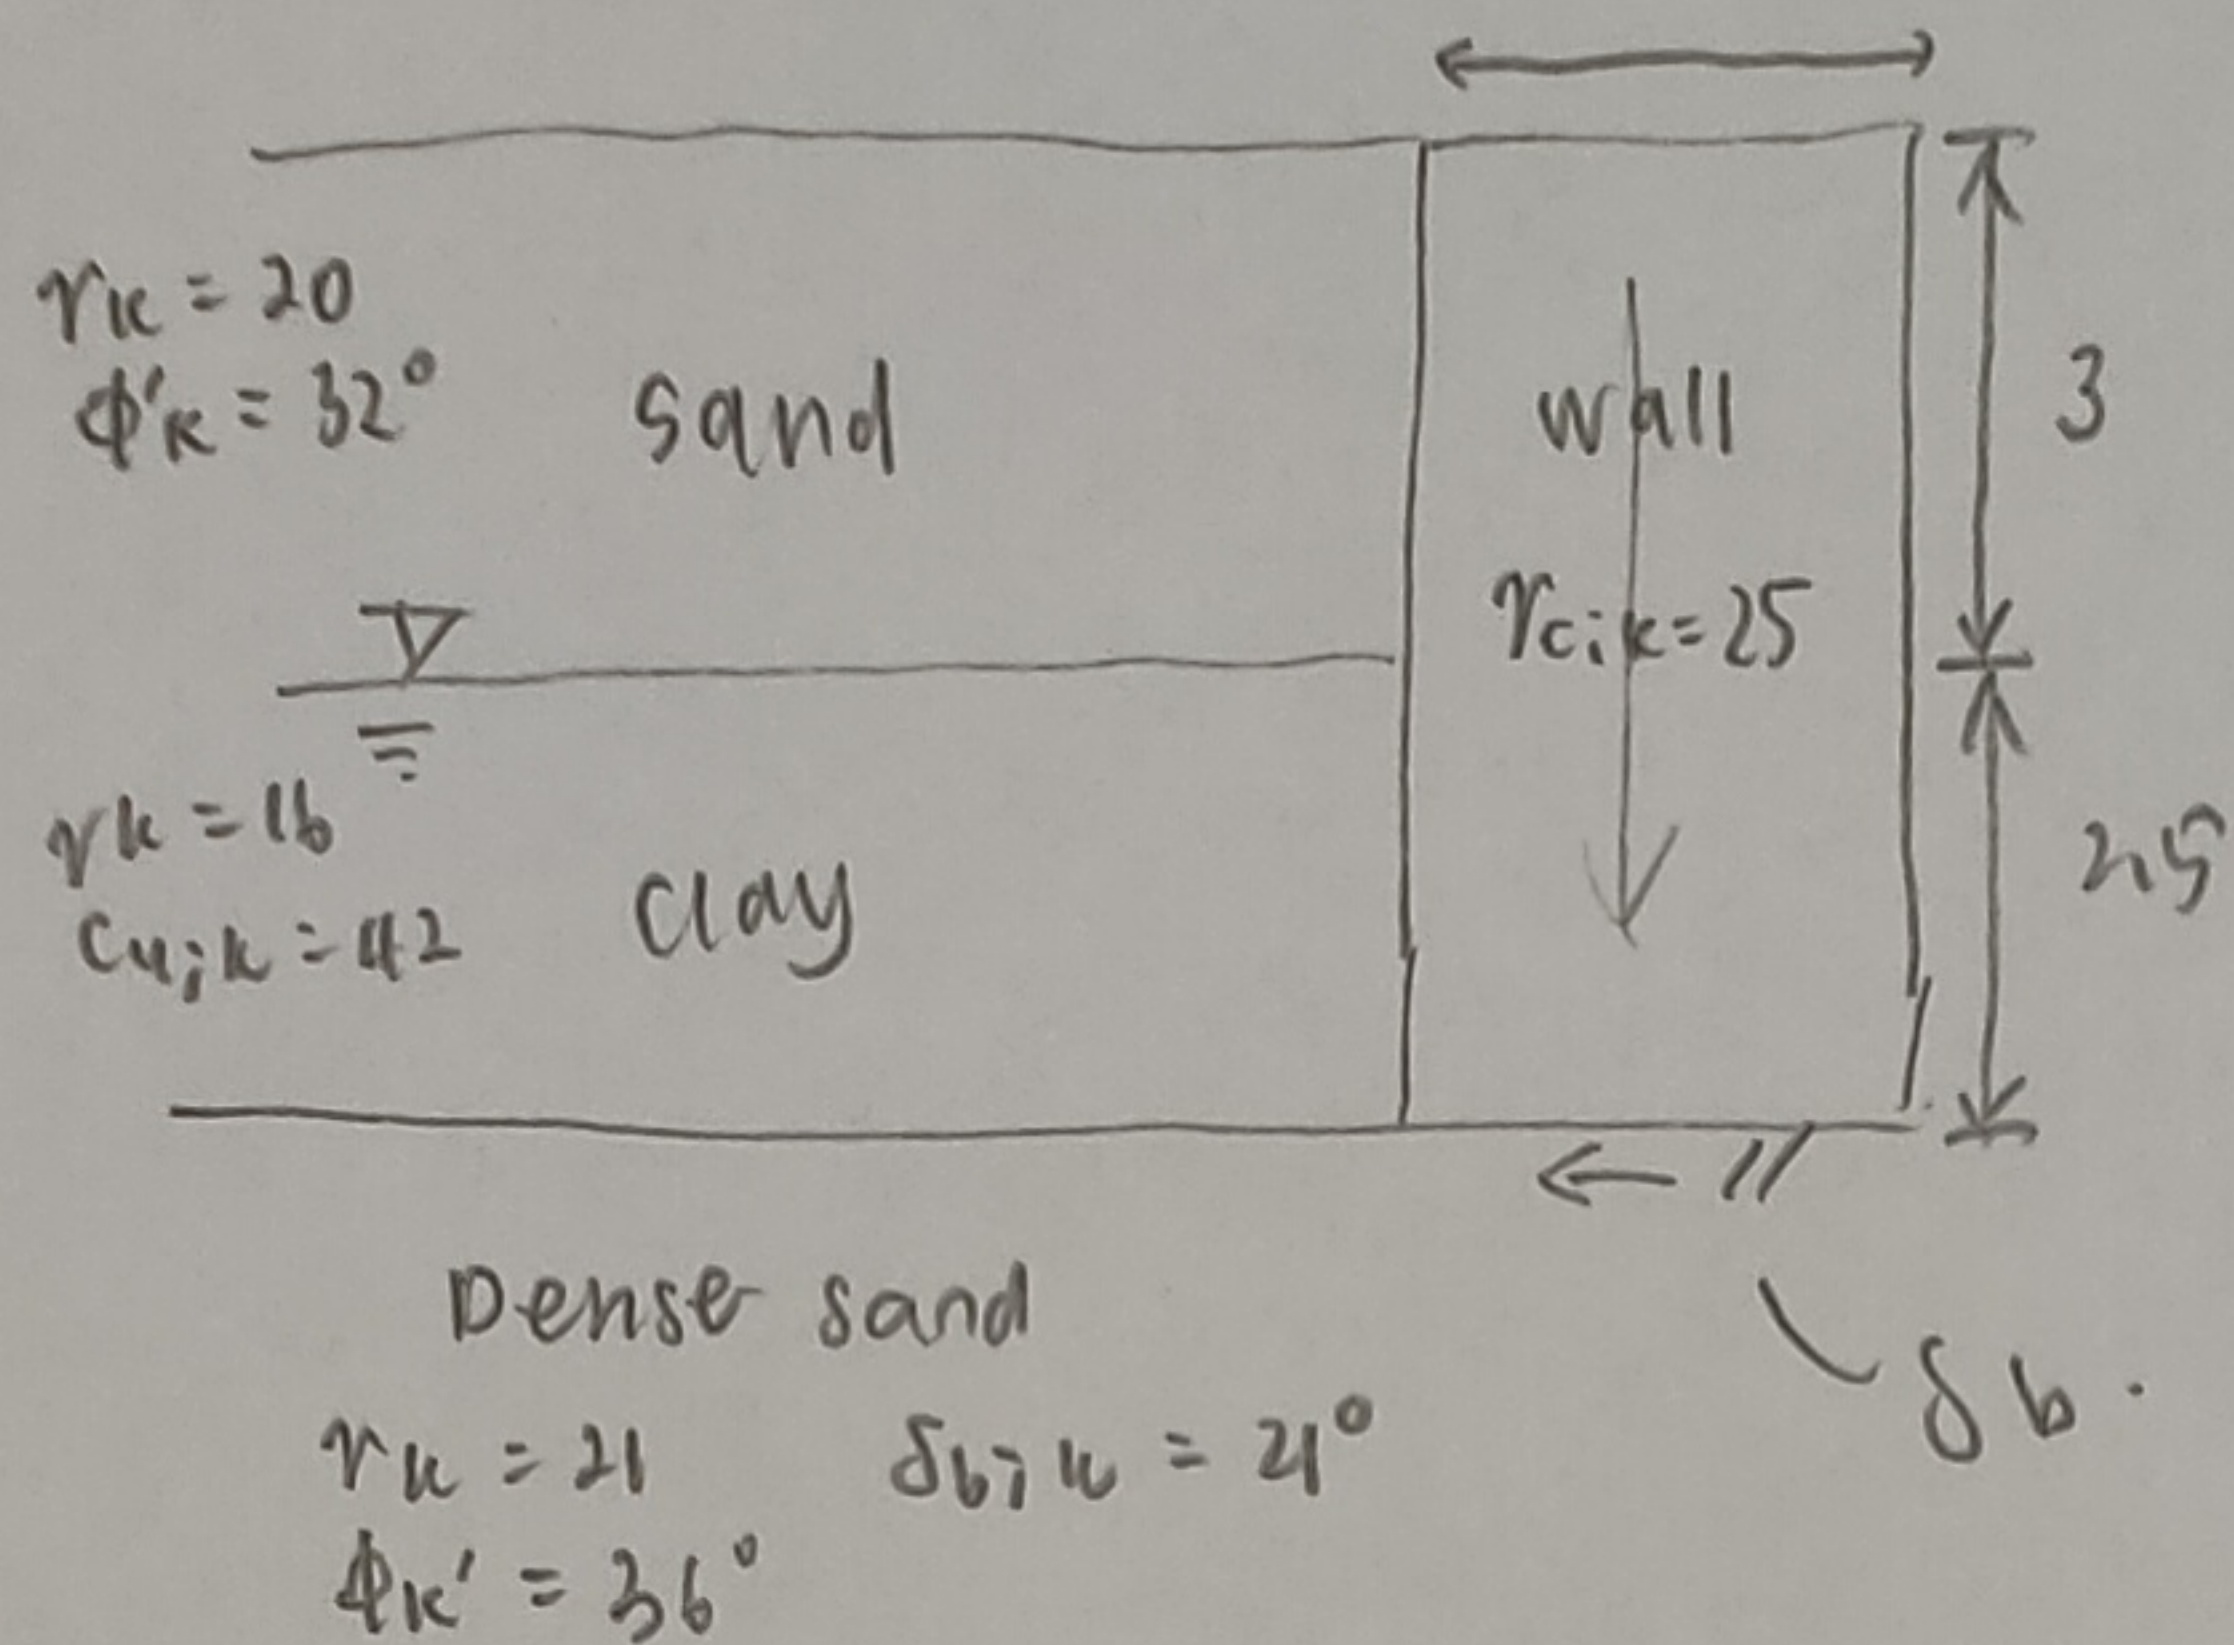 γk = 20
ϕ'k = 32°
sand
wall
3
γc;k = 25
γk = 16
cu;k = 42
clay
2.5
Dense sand
δb.
γk = 21
δb;k = 21°
ϕk' = 36°